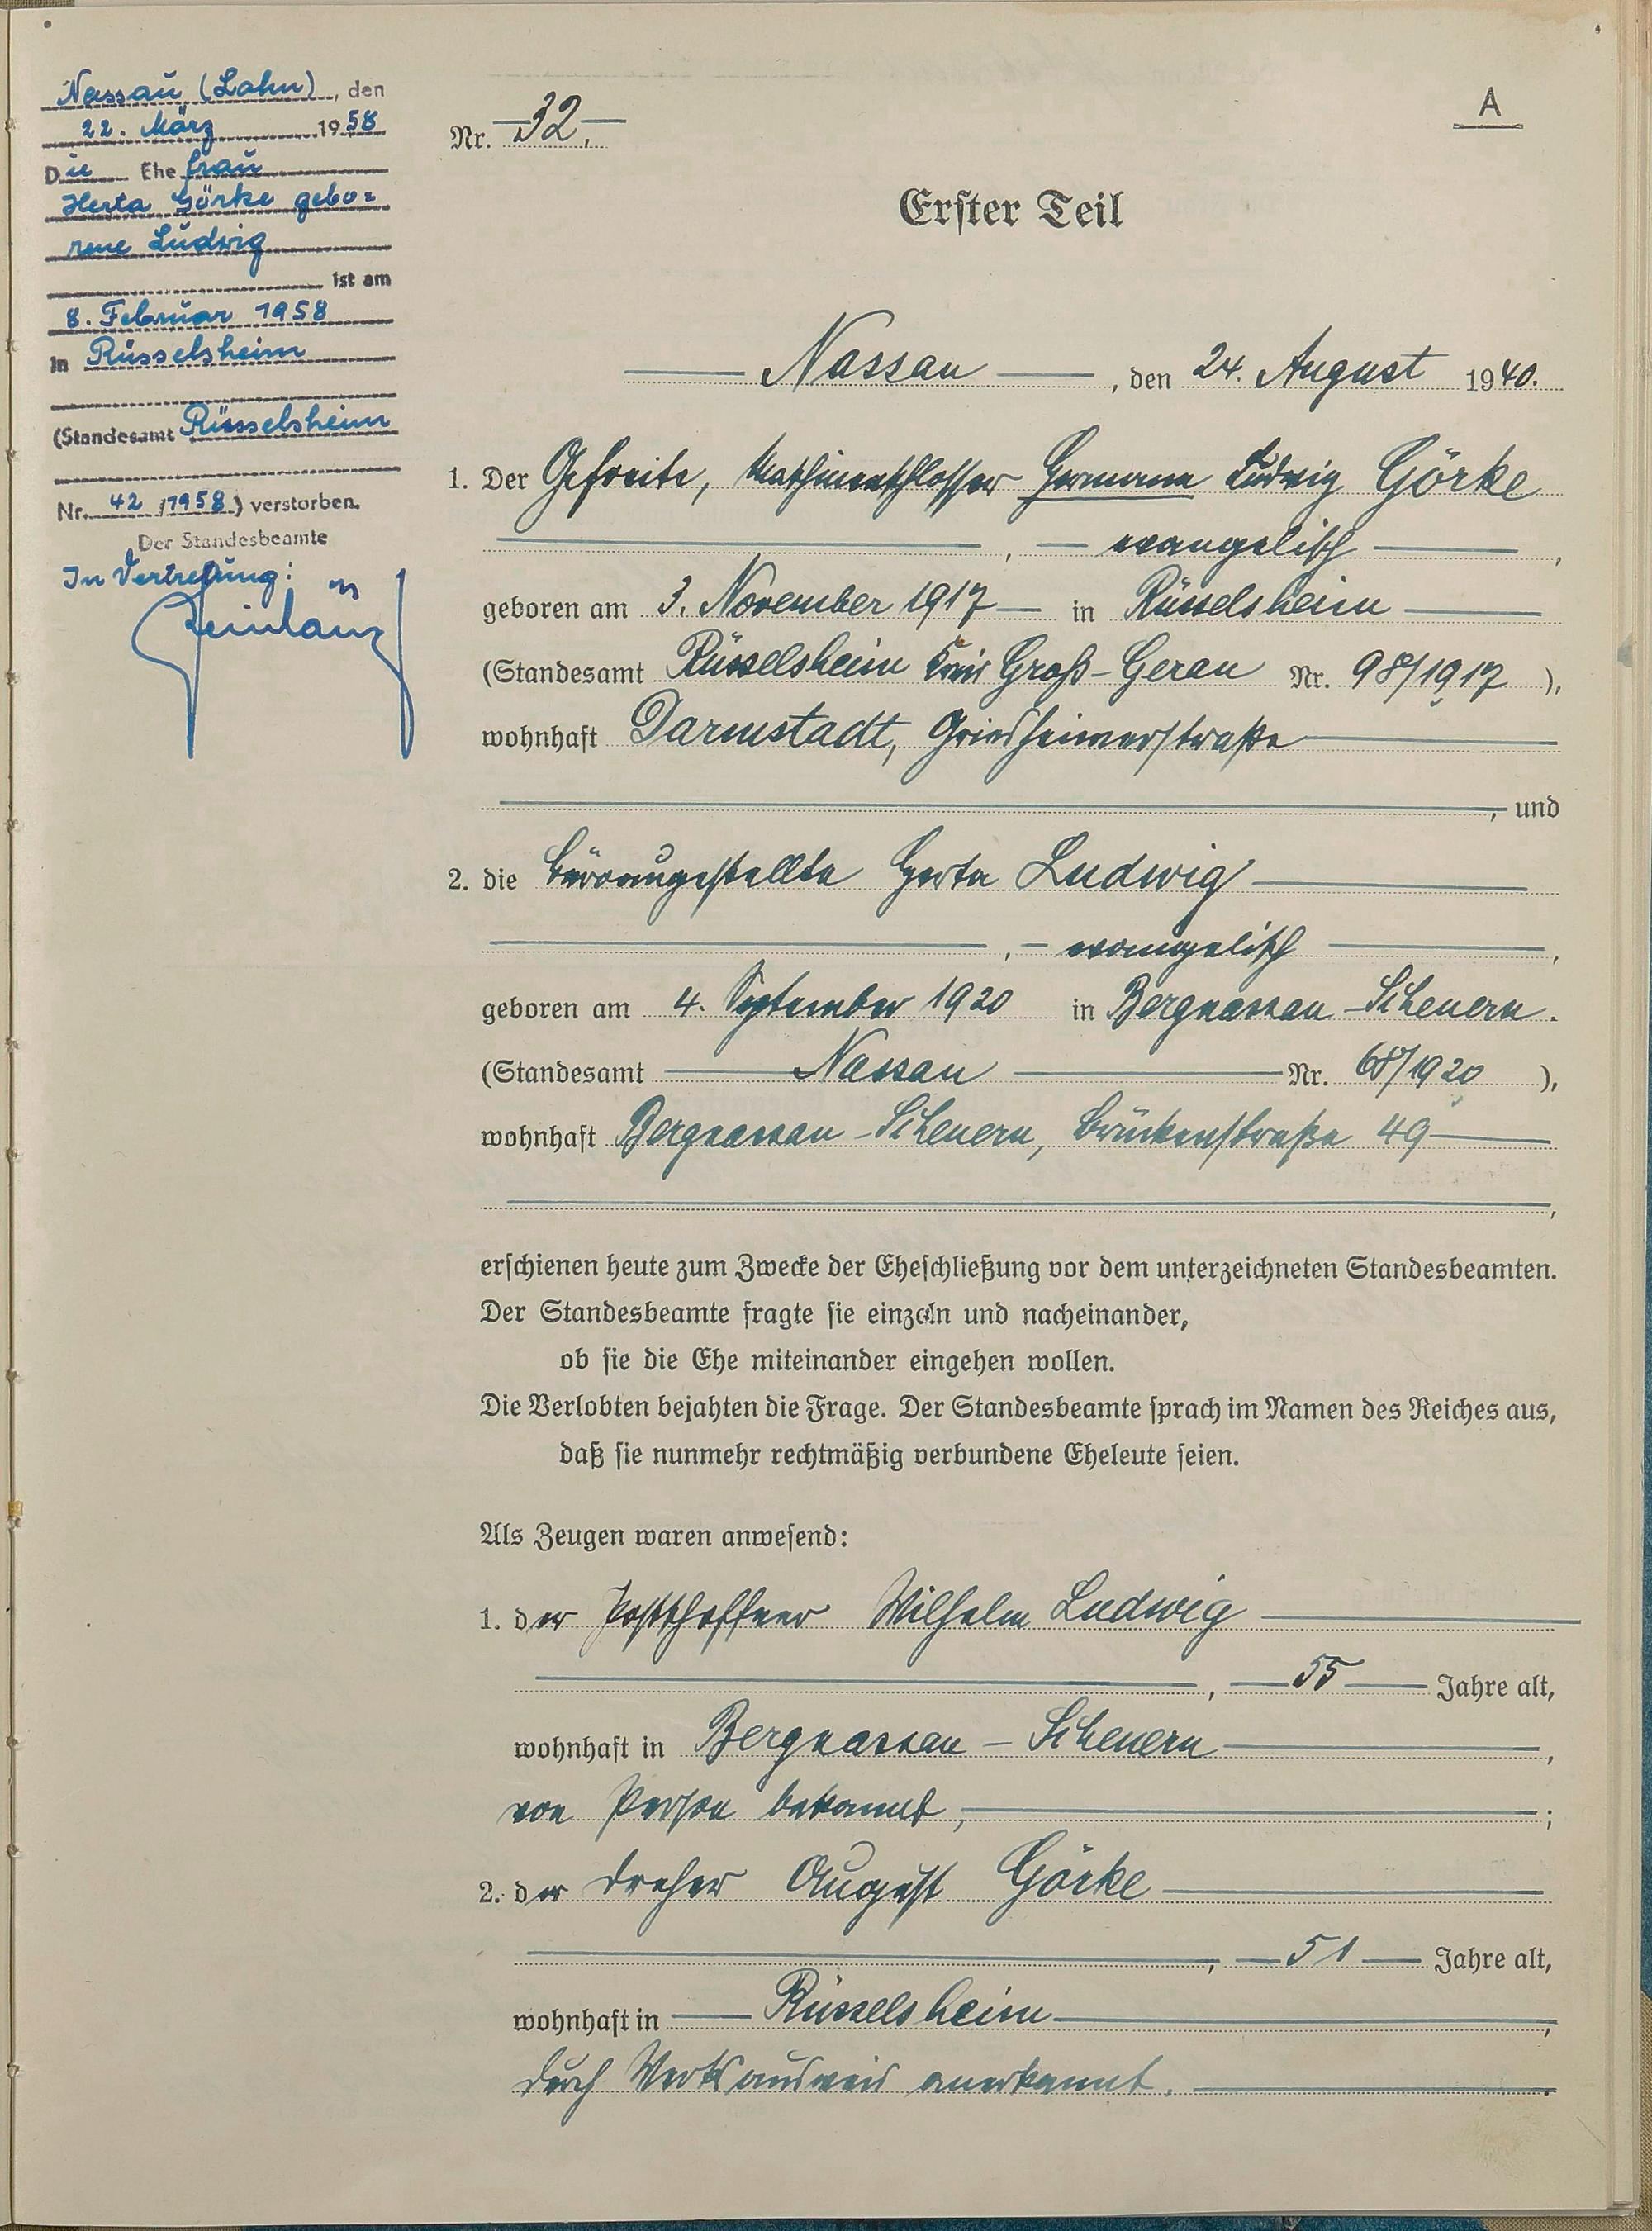 Nassau (Lahn), den
22. März 1958
Die Ehefrau
Herta Görke gebo=
rene Ludwig
ist am
8. Februar 1958
in Rüsselsheim
(Standesamt Rüsselsheim
Nr. 42/1958) verstorben.
Der Standesbeamte
In Vertretung:
A
Nr. 32.
Erster Teil
Nassau, den 24. August 1940.
1. Der Gefreite, Maschinenschlosser Hermann Ludwig Görke
, evangelisch,
geboren am 3. November 1917 in Rüsselsheim
(Standesamt Rüsselsheim Kreis Groß-Gerau Nr. 98/1917),
wohnhaft Darmstadt, Griesheimerstraße
, und
2. die Büroangestellte Herta Ludwig
, evangelisch,
geboren am 4. September 1920 in Bergnassau-Scheuern.
(Standesamt Nassau Nr. 68/1920),
wohnhaft Bergnassau-Scheuern, Brückenstraße 49
,
erschienen heute zum Zwecke der Eheschließung vor dem unterzeichneten Standesbeamten.
Der Standesbeamte fragte sie einzeln und nacheinander,
ob sie die Ehe miteinander eingehen wollen.
Die Verlobten bejahten die Frage. Der Standesbeamte sprach im Namen des Reiches aus,
daß sie nunmehr rechtmäßig verbundene Eheleute seien.
Als Zeugen waren anwesend:
1. der Postschaffner Wilhelm Ludwig
, 55 Jahre alt,
wohnhaft in Bergnassau-Scheuern,
von Person bekannt,;
2. der Dreher August Görke
, 51 Jahre alt,
wohnhaft in Rüsselsheim,
durch Werksausweis anerkannt.